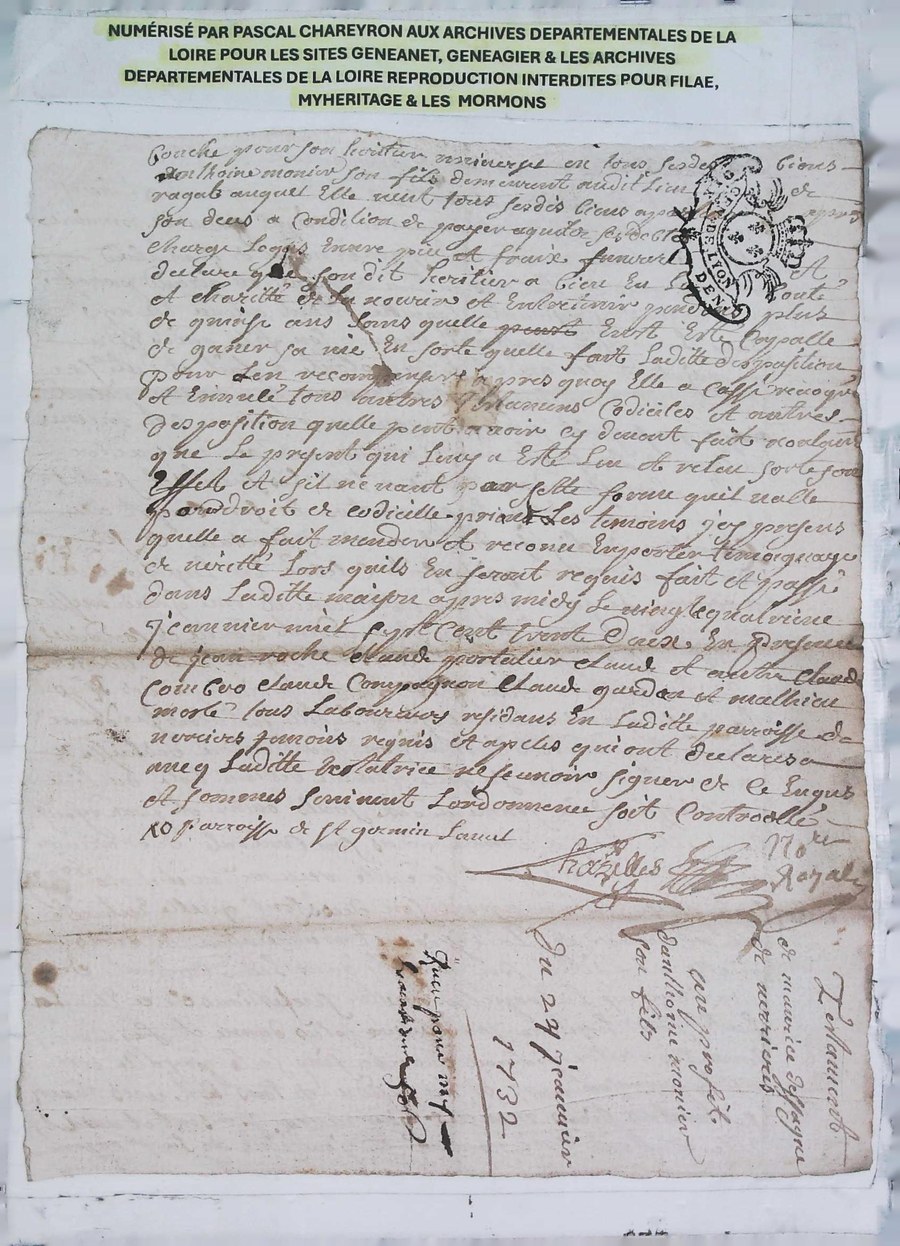 NUMÉRISÉ PAR PASCAL CHAREYRON AUX ARCHIVES DEPARTEMENTALES DE LA
LOIRE POUR LES SITES GENEANET, GENEAGIER & LES ARCHIVES
DEPARTEMENTALES DE LA LOIRE REPRODUCTION INTERDITES POUR FILAE,
MYHERITAGE & LES MORMONS
bouche pour son heritier universel en tous sesdits biens
anthoine monier son fils demeurant audit lieu de
auquel Elle veut tous sesdits biens
son deces a Condition de payer
charge Legats Envre pie et fraix
declare que sondit heritier a bien Eu
et charité de la nourir et Entretenir plus
de quinse ans sans quelle Enst Esté
de ganer sa vie En sorte quelle fait laditte disposition
pour Len recompenser apres quoy Elle a Cassé revoqué
et Ennulé tous autres testamens Codiciles et autres
disposition quelle peut avoir cy devant fait voulant
que Le present qui Luy a Esté Leu et releu sorte son
Effet et sil ne vaut par cette forme quil valle
par droit de codicille priant Les temoins icy presens
quelle a fait mender et reconu En porter temoignage
de verité Lors quils En seront requis fait et passé
dans Laditte maison apres midy Le vingtequatriene
jeanvier mil sept Cent trant deux En presence
de jean roche claude portalier claude et autre claude
Combro claude Compagnon claude gardon et mathieu
morle tous Laboureurs residans En laditte parroisse de
temoins requis et apeles qui ont declares
avec Laditte testatrice ne scavoir signer de ce Enquis
et sommes suivant Lordonnence soit Controlle
parroisse de st germin Laval
Chazelles Nore
Royal
GEN DE LYON
Testament
de maurice
de verrieres
au profit
danthoine monier
son fils
Du 24 jeanvier
1732